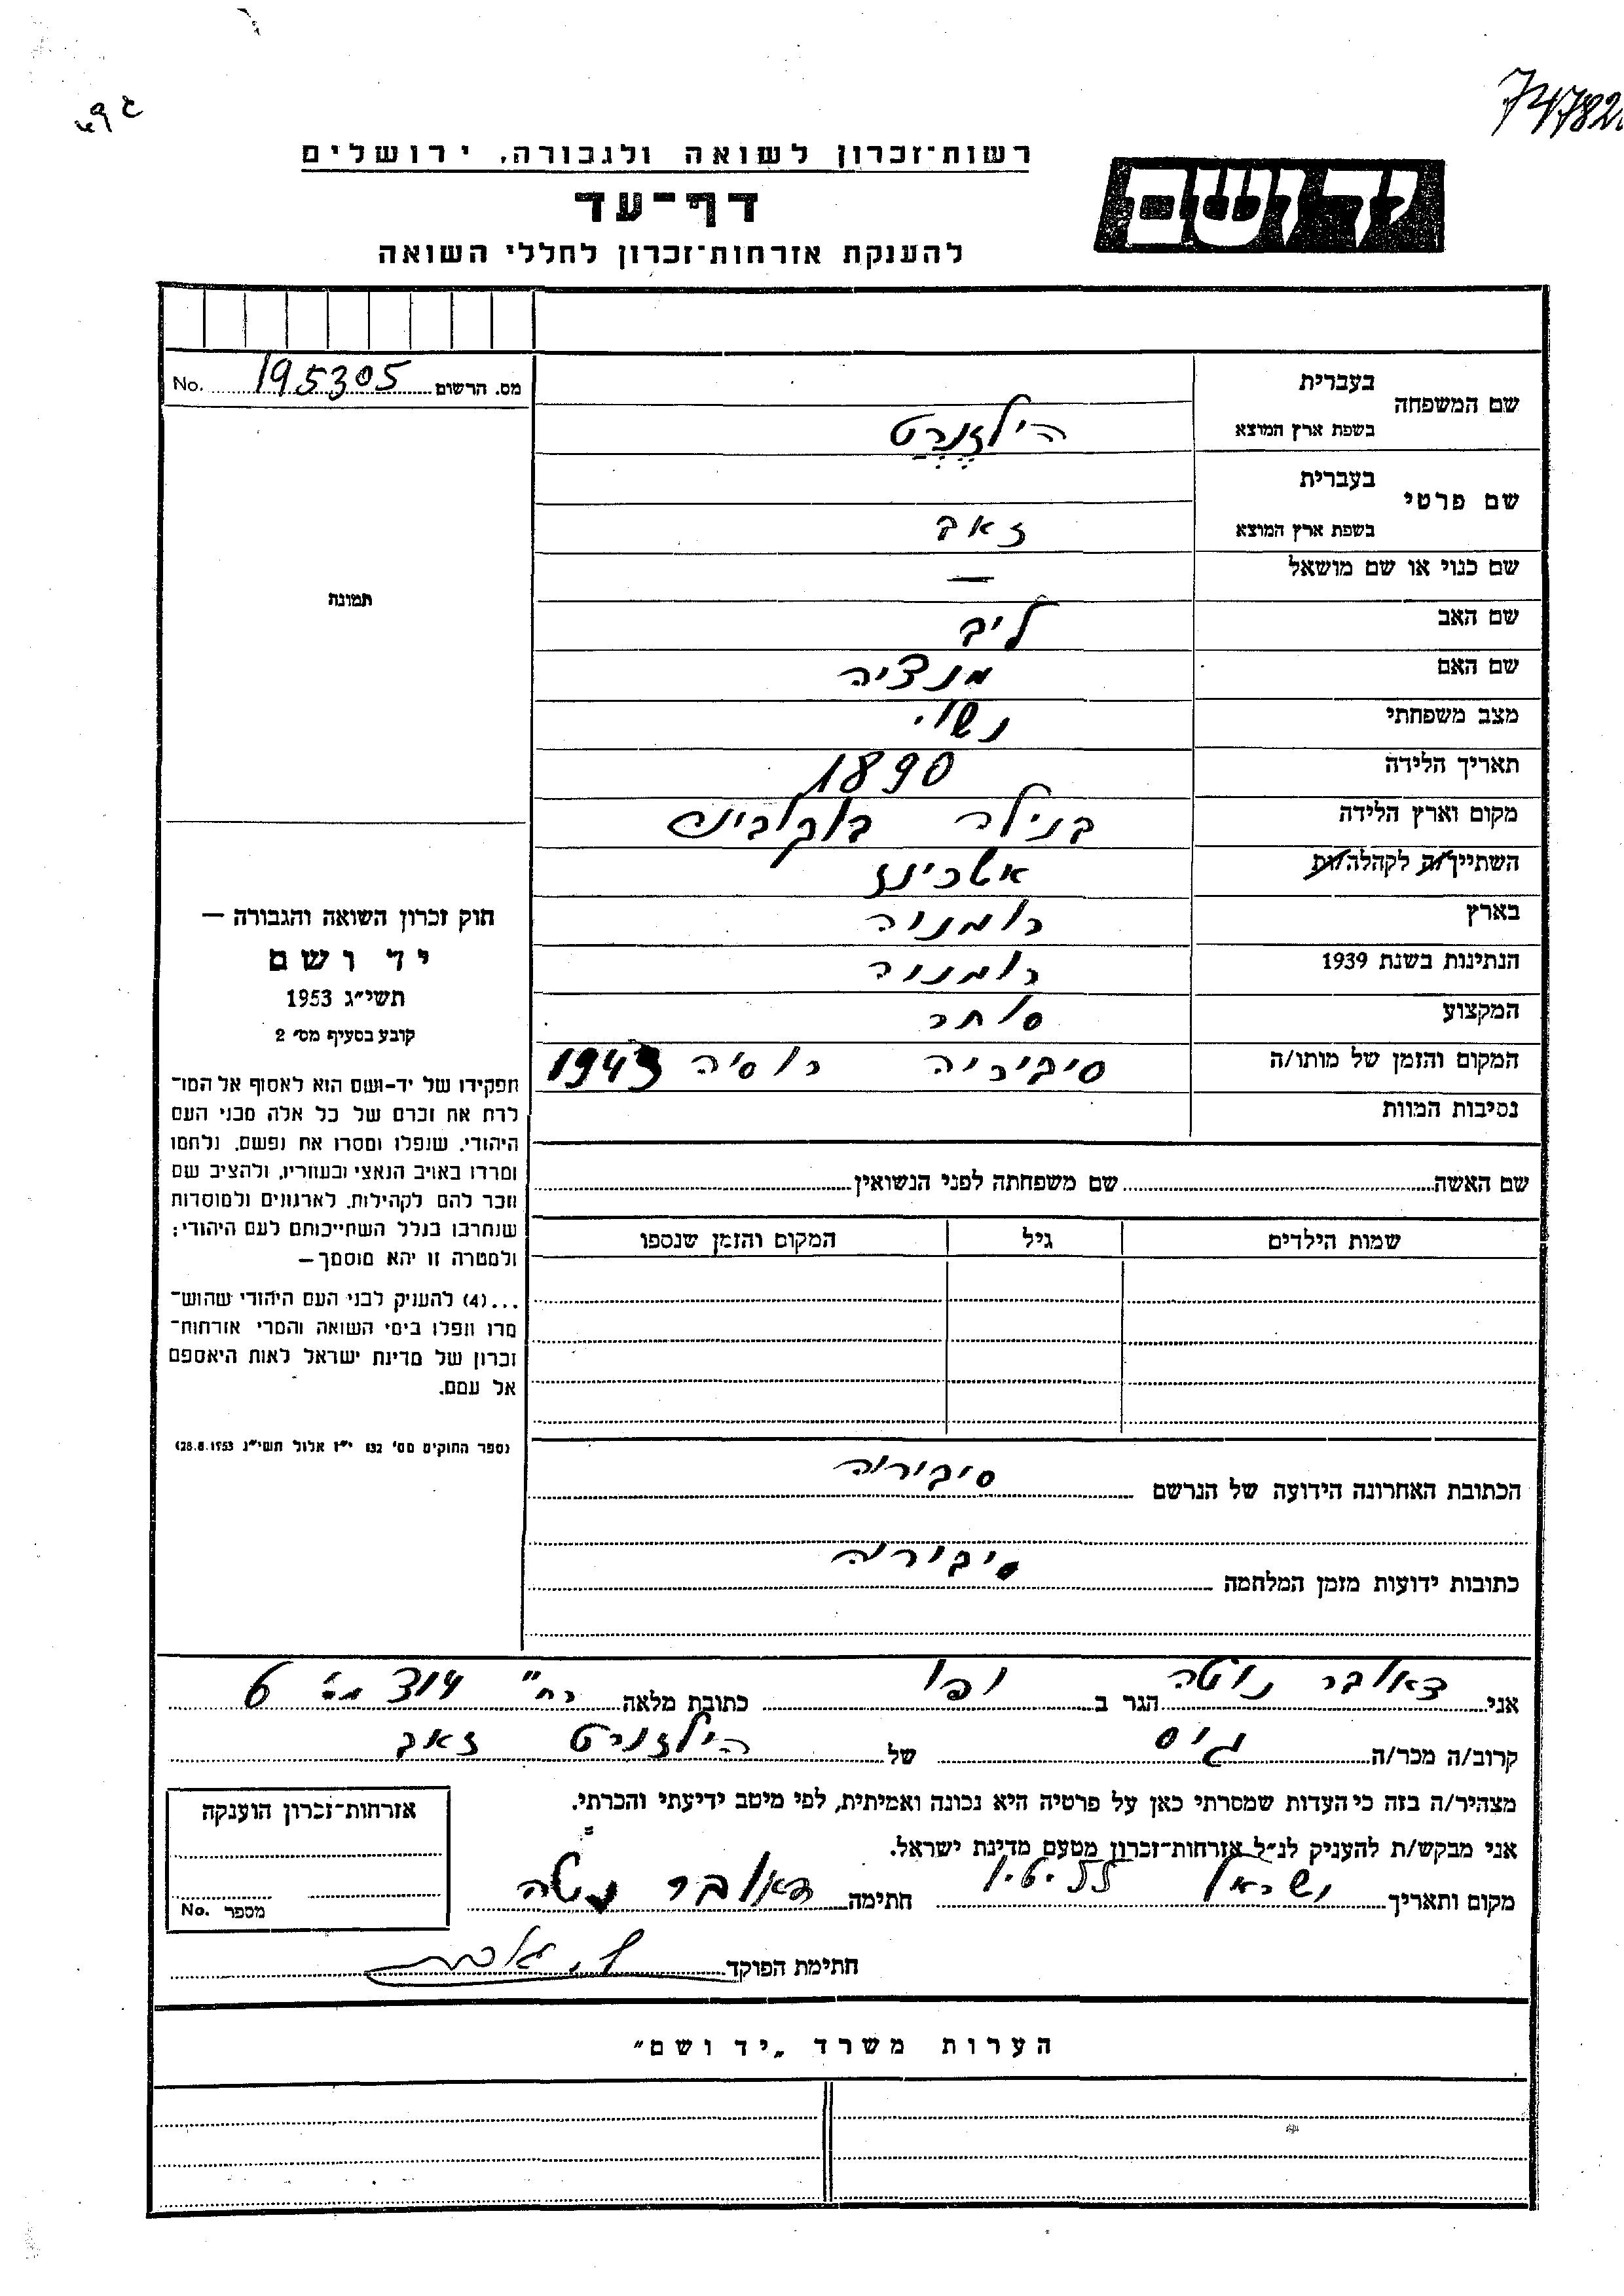 747821
יד ושם
רשות־זכרון לשואה ולגבורה, ירושלים
דף־עד
להענקת אזרחות־זכרון לחללי השואה
מס. הרשום 195305 No.
שם המשפחה
בעברית
בשפת ארץ המוצא הילזנרט
שם פרטי
בעברית
בשפת ארץ המוצא זאב
שם כנוי או שם מושאל —
שם האב ליב
שם האם מנציה
מצב משפחתי נשוי
תאריך הלידה 1890
מקום וארץ הלידה בנילה
השתייך/ה לקהלה/ות אשכינז
בארץ רומניה
הנתינות בשנת 1939 רומניה
המקצוע סוחר
המקום והזמן של מותו/ה סיביריה רוסיה 1943
נסיבות המוות
תמונה
חוק זכרון השואה והגבורה —
יד ושם
תשי״ג 1953
קובע בסעיף מס׳ 2
תפקידו של יד-ושם הוא לאסוף אל המו־
לדת את זכרם של כל אלה מבני העם
היהודי, שנפלו ומסרו את נפשם, נלחמו
ומרדו באויב הנאצי ובעוזריו, ולהציב שם
וזכר להם לקהילות, לארגונים ולמוסדות
שנחרבו בגלל השתייכותם לעם היהודי;
ולמטרה זו יהא מוסמך —
...(4) להעניק לבני העם היהודי שהוש־
מדו ונפלו בימי השואה והמרי אזרחות־
זכרון של מדינת ישראל לאות היאספם
אל עמם.
(ספר החוקים מס׳ 132 י״ז אלול תשי״ג 28.8.1953)
שם האשה שם משפחתה לפני הנשואין
שמות הילדים גיל המקום והזמן שנספו
הכתובת האחרונה הידועה של הנרשם סיביריה
כתובות ידועות מזמן המלחמה סיביריה
אני דאובר נוטה הגר ב יפו כתובת מלאה רח״ 6
קרוב/ה מכר/ה גיס של הילזנרט זאב
מצהיר/ה בזה כי העדות שמסרתי כאן על פרטיה היא נכונה ואמיתית, לפי מיטב ידיעתי והכרתי.
אני מבקש/ת להעניק לנ״ל אזרחות־זכרון מטעם מדינת ישראל.
מקום ותאריך ישראל חתימה דאובר נוטה
חתימת הפוקד
אזרחות־זכרון הוענקה
מספר No.
הערות משרד „יד ושם״